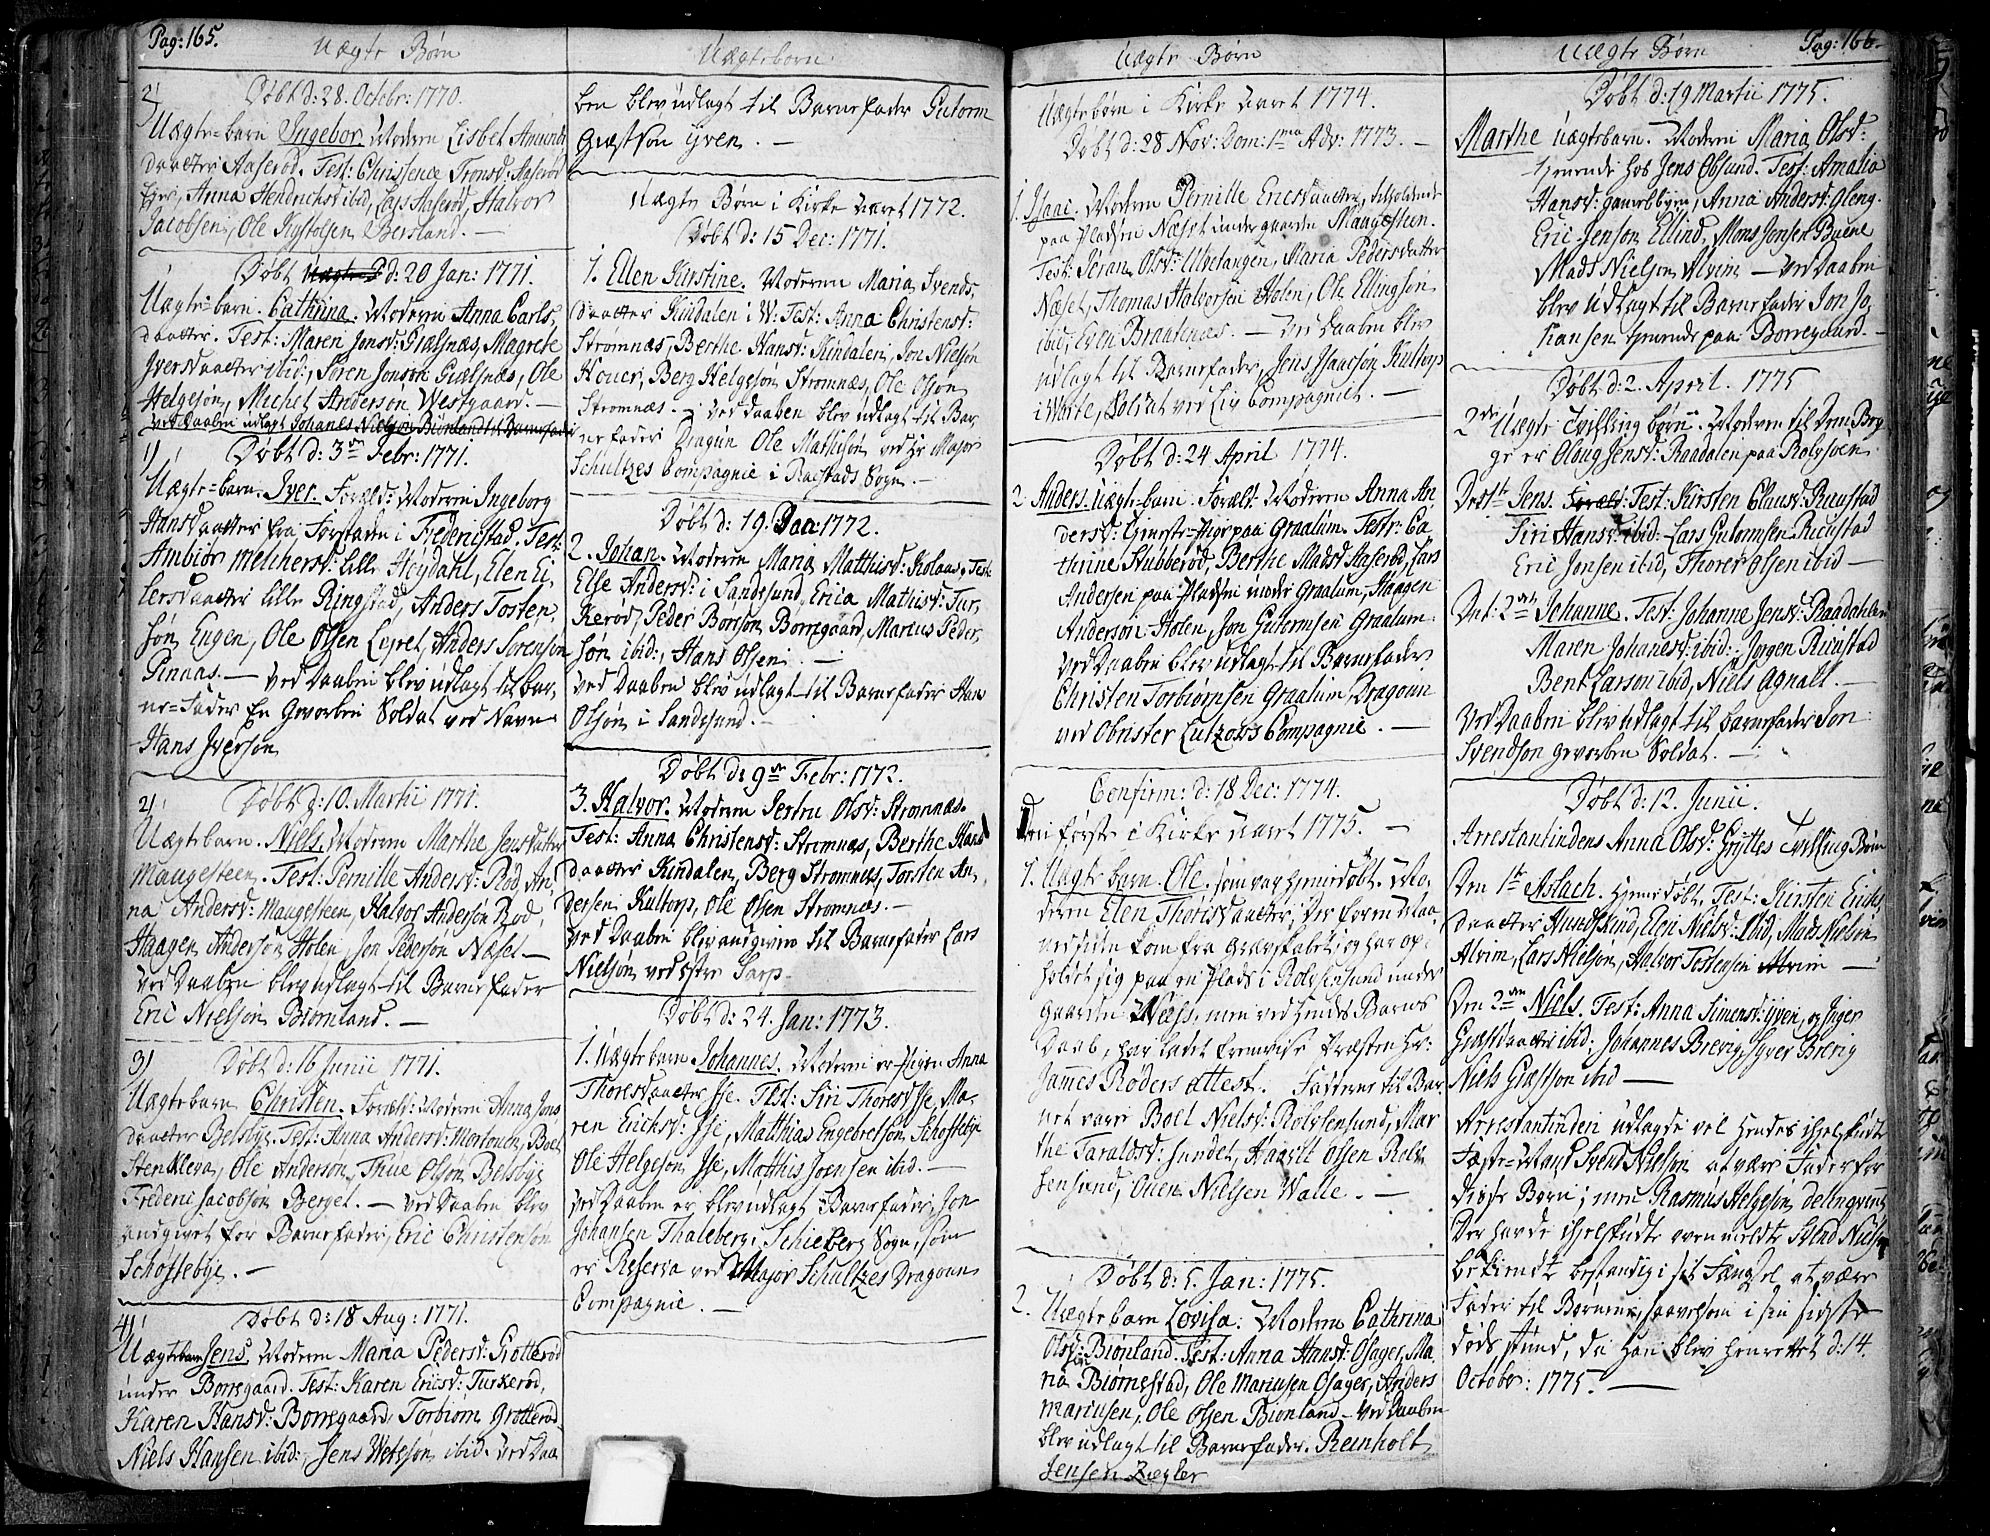 Pag: 165.
Uægte Børn
2)
Døbt d: 28. Octobr: 1770.
Uægte-barn Ingebor. Moderen Lisbet Amunds
daatter Aaserød. Test: Christence Tronsd: Aaserød
Anna Hendrichsd ibid, Lars Aaserød, Halvor
Jacobsen, Ole Kystolsen Bersland. —
Døbt d: 20 Jan: 1771.
Uægte-barn. Cathrina. Moderen Anna Carls,
daatter. Test: Maren Jensd: Giælsnæs, Magrete
Iversdaatter ibid:, Søren Jonson Giælsnæs, Ole
Helgesøn, Michel Anderson Westgaard. —
ved Daaben udlagt Johanes Nielsøn Biønland til Barnefader
1)
Døbt d: 3de Febr: 1771.
Uægte-barn. Iver. Foræld: Moderen Ingeborg
Hansdaatter fra Forstaden i Friderichstad. Test:
Ambiør Melchersd: Lille Høydahl, Elen Ei,
lersdaatter Lille Ringstad, Anders Torsten,
søn Engen, Ole Olsen Lepret, Anders Sørenson
Pinaas. — ved Daaben blev udlagt til Bar,
ne-Fader En Gevorben Soldat ved Navn
Hans Iversøn
2)
Døbt d: 10. Martii 1771.
Uægtebarn. Niels. Moderen Marthe Jensdatter
Maugesteen. Test: Pernille Andersd: Rød, An,
na Andersd: Maugesteen, Halvor Andersøn Rød,
Haagen Anderson Holen, Jon Pedersøn Næset —
ved Daaben blev udlagt til Barnefader
Eric Nielsøn Biørnland. —
3)
Døbt d: 16 Junii 1771.
Uægtebarn Christen. Foræld: Moderen Anna Jons
daatter Belsbye. Test: Anna Andersd: Mortonen, Boel
Stenkleva, Ole Andersøn, Thue Olsøn Belsbye
Frederic Jacobsøn Berget. — ved Daaben blev
andgivet for Barnefader, Eric Christensøn
Schøsebye. —
4)
Døbt d: 18 Aug: 1771.
Uægtebarn Jens. Moderen Maria Pedersd: Grotterød
under Borregaard. Test: Karen Ericsd: Turkerød,
Karen Hansd: Borregaard, Torbiørn Grotterød
Niels Hansen ibid:, Jens Wetesøn ibid. ved Daa
Uægtebørn
ben blev udlagt til Barnefader Gutorm
Giæstsøn Yven. —
Uægte Børn i Kirke Aaret 1772.
Døbt d: 15 Dec: 1771.
1. Ellen Kirstine. Moderen Maria Svends,
daatter Kindalen i W: Test: Anna Christensd:
Stromnæs, Berthe Hansd: Kindalen, Jon Nielsøn
Houer, Berg Helgesøn Stromnæs, Ole Olsøn
Stromnæs. — ved daaben blev udlagt til Bar
ne fader Dragun Ole Mathisøn ved Hr Major
Schultzes Compagnie i Raestads Sogn. —
Døbt d: 19. Jan: 1772.
2. Johan. Moderen Maria Matthisd: Kolaas. Test:
Else Andersd: i Sandesund, Erica Mathisd: Tur,
kerød, Peder Borsøn Borregaard, Marius Peder,
søn ibid:, Hans Olsen. —
ved Daaben blev udlagt til Barnefader Hans
Olsøn i Sandesund. —
Døbt d: 9de Febr: 1772.
3. Halvor. Moderen Sertru Olsd: Stromnæs.
Test: Anna Christensd: Stromnæs, Berthe Hans
daatter Kindalen, Berg Stromnæs, Torsten An,
dersen Kultorp, Ole Olsen Stromnæs. —
ved Daaben blev andgiven til Barnefader Lars
Nielsøn ved østre Sarp.
Døbt d: 24. Jan: 1773.
1. Uægtebarn Johannes. Moderen er Pigen Anna
Thoresdaatter Ise. Test: Siri Thoresd Ise, Ma,
ren Erichsd: Ise, Matthias Engebretson, Schosebÿe
Ole Helgeson, Ise, Matthis Joensen ibid. —
ved Daaben er blev udlagt Barnefader, Jon
Johansen Thaleberg i Schieberg Sogn, som
er Reserva ved Major Schultzes Dragoun
Compagnie. —
Uægte Børn
Uægtebørn i Kirke Aaret 1774.
Døbt d: 28 Nov: Dom: 1ma Adv: 1773. —
1. Isaac. Moderen Pernille Ericsdaatter, tilholdende
paa Pladsen Næset under gaarden Maagesteen.
Test: Jøran Olsd: Ulvetangen, Maria Pedersdatter
Næset, Thomas Halversen Holen, Ole Ellingsøn
ibid, Even Braatenæs. — ved Daaben blev
udlagt til Barnefader, Jens Isaacsøn Kultorp
i Warte, Soldat ved Liv Compagniet. —
Døbt d: 24 April 1774.
2. Anders. Uægte-barn. Foræld: Moderen Anna An
dersd: Tieneste-Pige paa Graalum. Test: Ca
thrine Stubberød, Berthe Madsd Aaserød, Lars
Andersen paa Pladsen under Graalum, Haagen
Andersøn Holen, Jon Gutormsen Graalum.
ved Daaben blev udlagt til Barnefader
Christen Torbiørnsen Graalum Dragoun
ved Obrister Lutzows Compagnie. —
Confirm: d: 18 Dec: 1774.
Den første i Kirke Aaret 1775. —
1. Uægte barn. Ole. som var hiemedøbt. Mo,
deren Elen Thorisdaatter, der for en Maa,
ned siden kom fra Grevskabet og har op,
holdt sig paa en Plads i Rolvsøsund under
Gaarden Næss, men ved hendes Barns
Daab, har ladet fremvise Præsten Hr:
James Røders Attest. Fadderne til Bar
net vare Boel Nielsd: Rolvsensund, Mar
the Taraldsd: Sundet, Haavel Olsen Rolv
sensund, Ouen Nielsen Walle. —
Døbt d: 5. Jan: 1775.
2. Uægtebarn Lovisa. Moderen Cathrina
Olsd: Biønland. Test: Anna Hansd: Osager, Ma,
ria Biørnestad, Ole Mariusen Osager, Anders
Mariusen, Ole Olsen Biønland — ved Daaben
blev udlagt til Barnefader. Reinholt
Jensen Ziegler
Uægte Børn
Pag: 166.
Døbt d: 19 Martii 1775.
Marthe Uægtebarn. Moderen Maria Olsd:
tienende hos Jens Obsund. Test: Amalia
Hansd: gamlebÿen, Anna Andersd: Oleng.
Eric Jenson Ellind, Mons Jonsen Buene
Mads Nielsøn Alvim — ved Daaben
blev udlagt til Barnefader Jon Jo,
hansen tienende paa Borregaard. —
Døbt d: 2. April. 1775
2de Uægte Tvilling børn. Moderen til dem Beg
ge er Oloug Jensd: Raadalen paa Rolvsøen
Den 1te Jens. Test: Kirsten Clausd: Ruustad
Siri Hansd: ibid: Lars Gutormsen Ruustad
Eric Jonsen ibid, Thorer Olsen ibid —
Den: 2den Johanne. Test: Johanne Jensd: Raadahlen
Maren Johanesd: ibid: Jørgen Ruustad
Bent Larson ibid, Niels Agnalt. —
ved Daaben blev udlagt til Barnefader Jon
Svendson gevorben Soldat. —
Døbt d: 12. Junii.
Arrestantindens Anna Olsd: Gryttes Tvilling Børn
Den 1te Aslach. Hiemedøbt. Test: Kirsten Erichs,
daatter Hundskind, Elen Nielsd: Ibid, Mads Nielsen
Alvim, Lars Nielsøn, Halvor Torstensen Alvim —
Den 2den Niels. Test: Anna Simensd: Yven, og Inger
Giæstdaatter ibid:, Johannes Brevig, Syver Brevig
Niels Giæstson ibid —
Arrestantinden udlagde vel hendes ihielskudte
Fæste-Mand Svend Nielson at være Fader for
disse Børn; men Rasmus Helgesøn, delinqvent
der havde ihielskudte ovenmeldte Svend Nielsøn
bekiendte bestandig i sit Fængsel at være
Fader til Børnene, saavelsom i sin sidste
døds stund, da han blev henrettet d: 14.
October: 1775. —